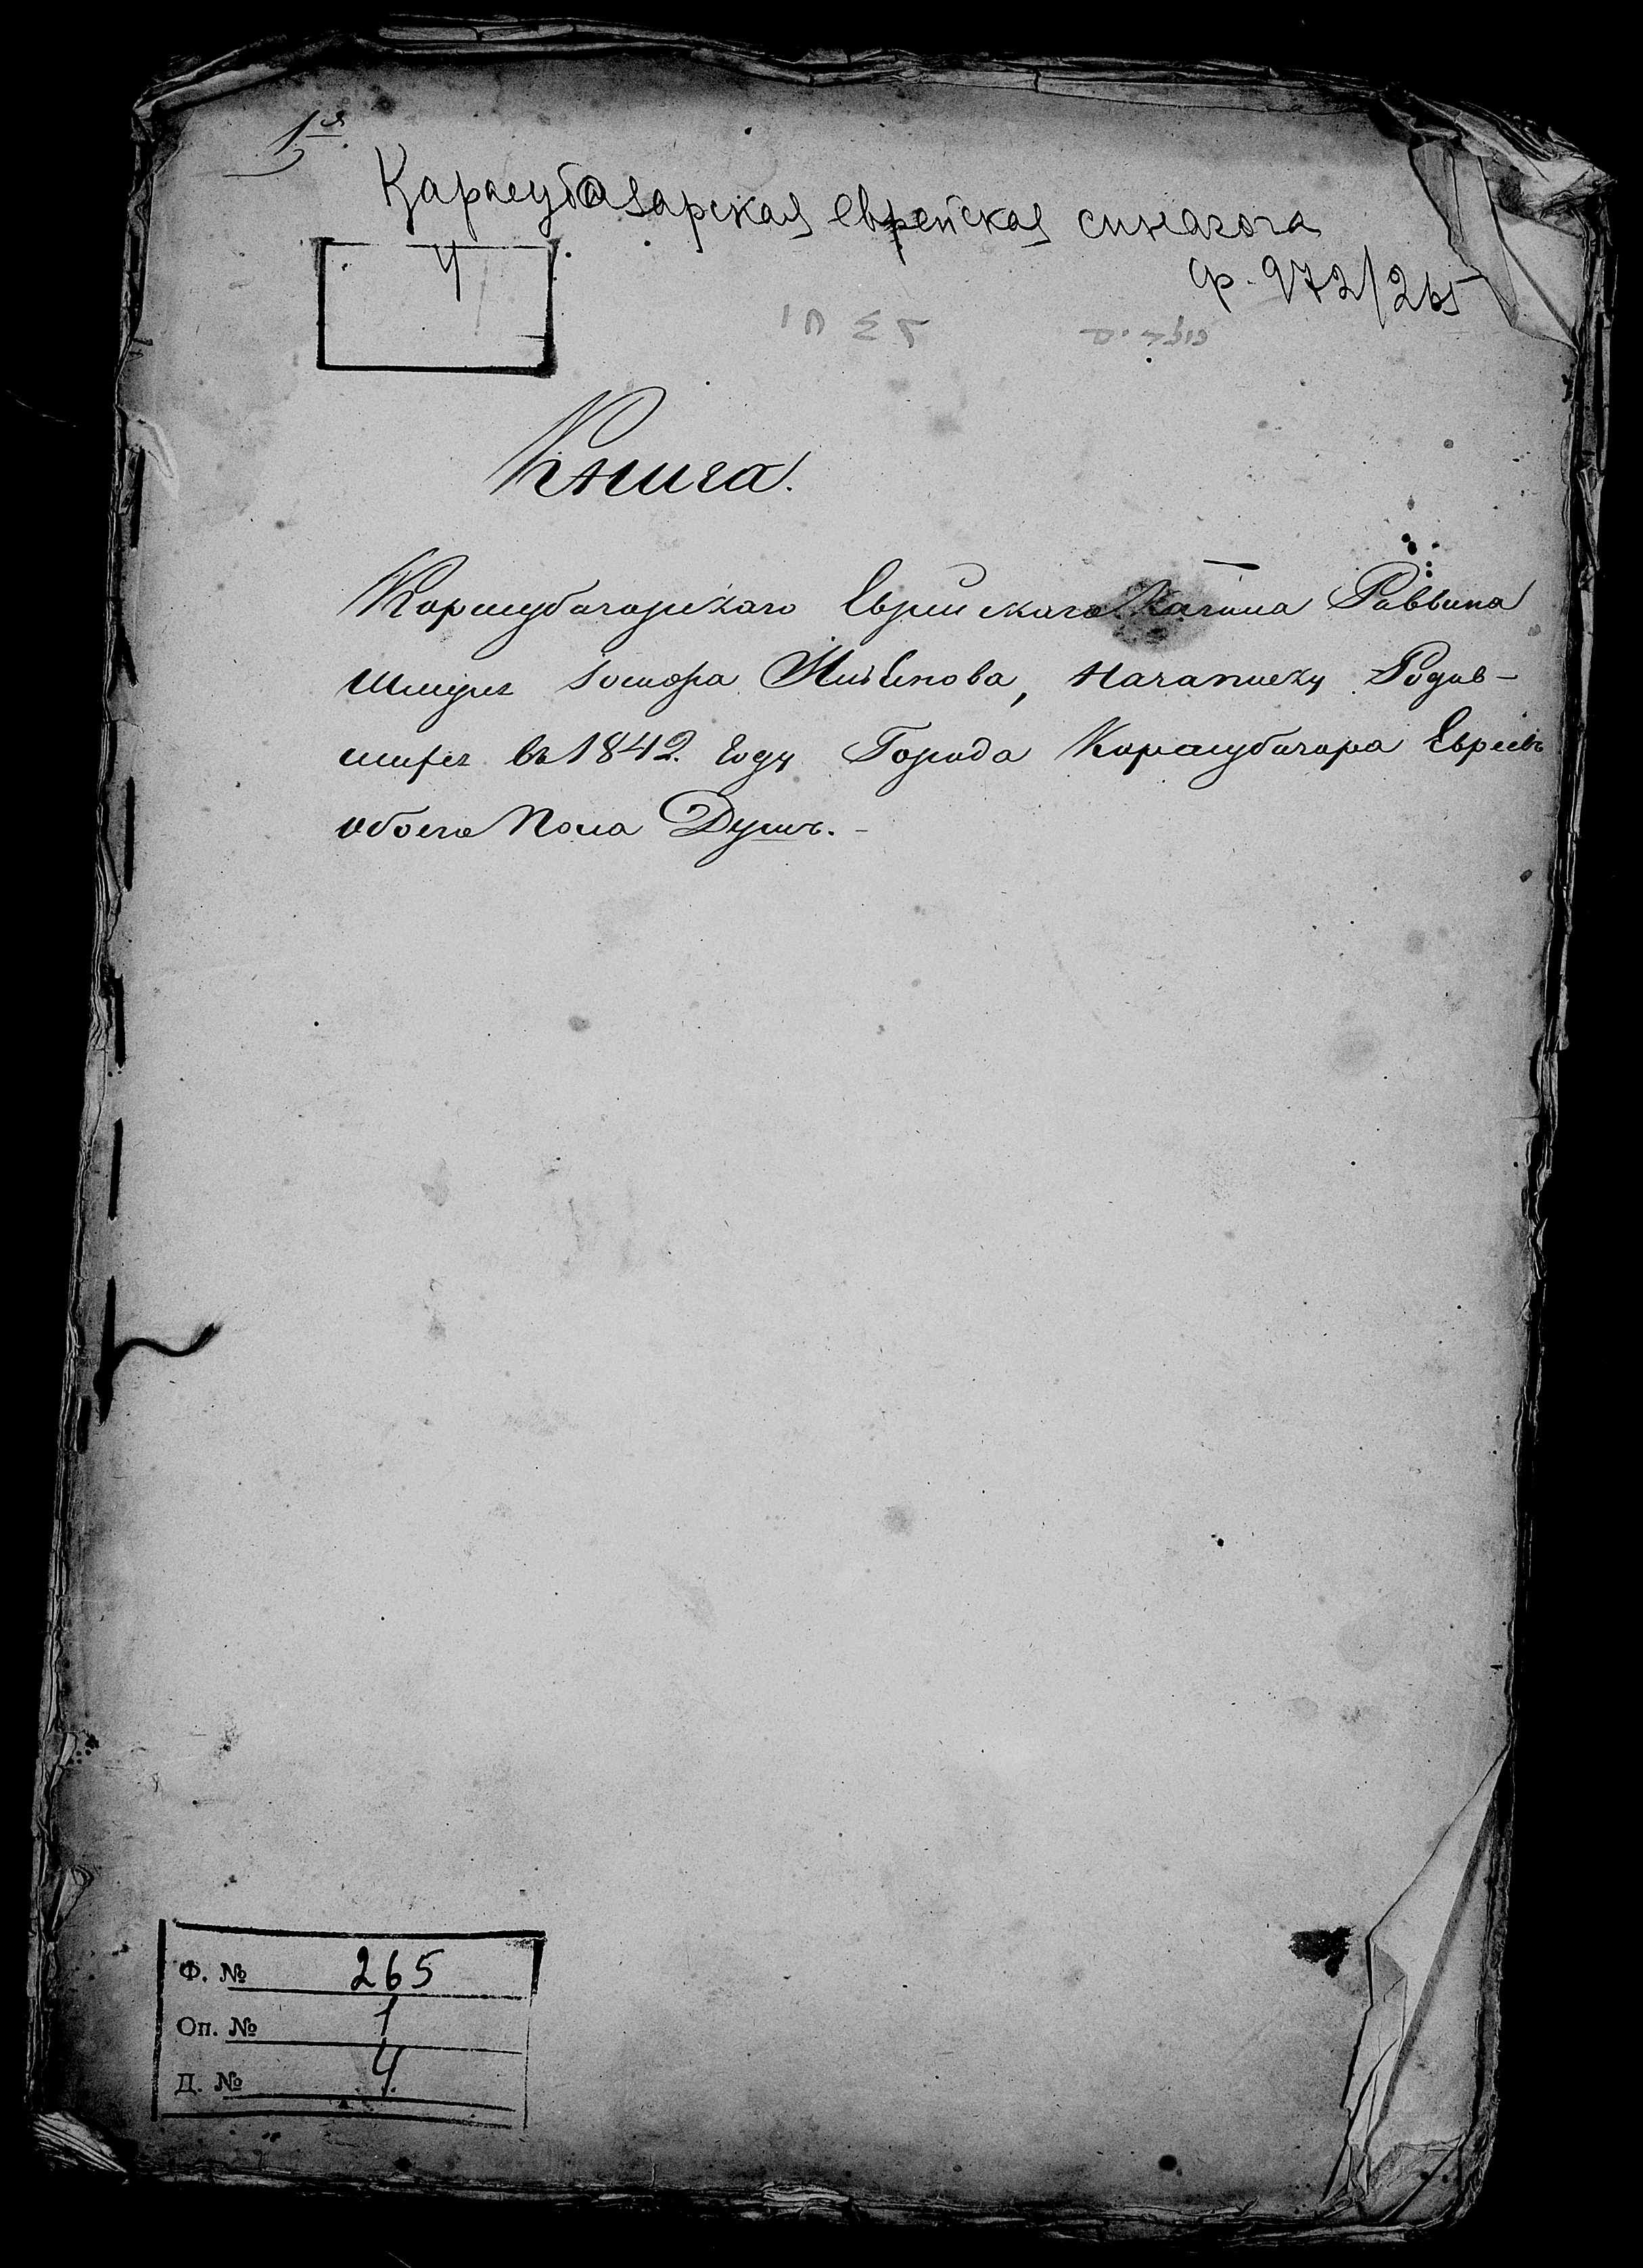 1я
Карасубазарская еврейская синагога
4
ф. 972/265
Книга.
Карасубазарскаго Еврейскаго Кагала Раввина
на записку Родив-
шихся въ 1842. Году Города Карасубазара Евреевъ
обоего Пола Душъ. -
Ф. № 265
Оп. № 1
Д. № 4